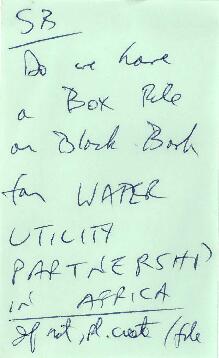 SB
Do we have
a Box File
or Black Book
for WATER
UTILITY
PARTNERSHIP
IN AFRICA
If not, pl. create /file